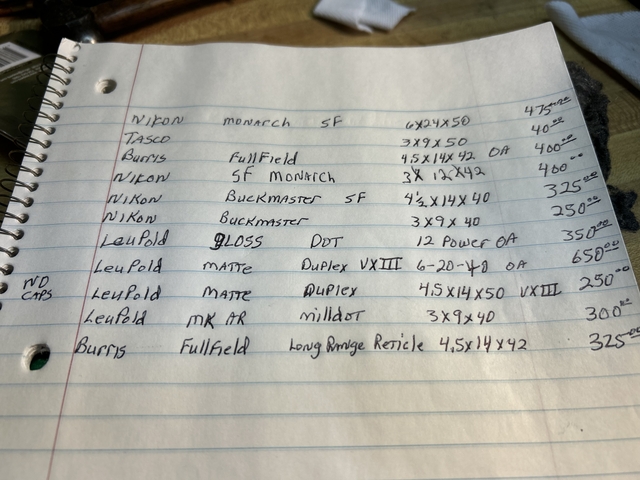 NIKON MONARCH SF 6x24x50 475.00
TASCO 3x9x50 40.00
Burris FullField 4.5x14x42 OA 400.00
NIKON SF MONARCH 3x12x42 400.00
NIKON BUCKMASTER SF 4½x14x40 325.00
NIKON BUCKMASTER 3x9x40 250.00
LeuPold gLOSS DOT 12 Power OA 350.00
LeuPold MATTE Duplex VXIII 6-20-40 OA 650.00
NO CAPS LeuPold MATTE Duplex 4.5x14x50 VXIII 250.00
LeuPold MK AR MillDOT 3x9x40 300.00
Burris Fullfield Long Range Reticle 4.5x14x42 325.00